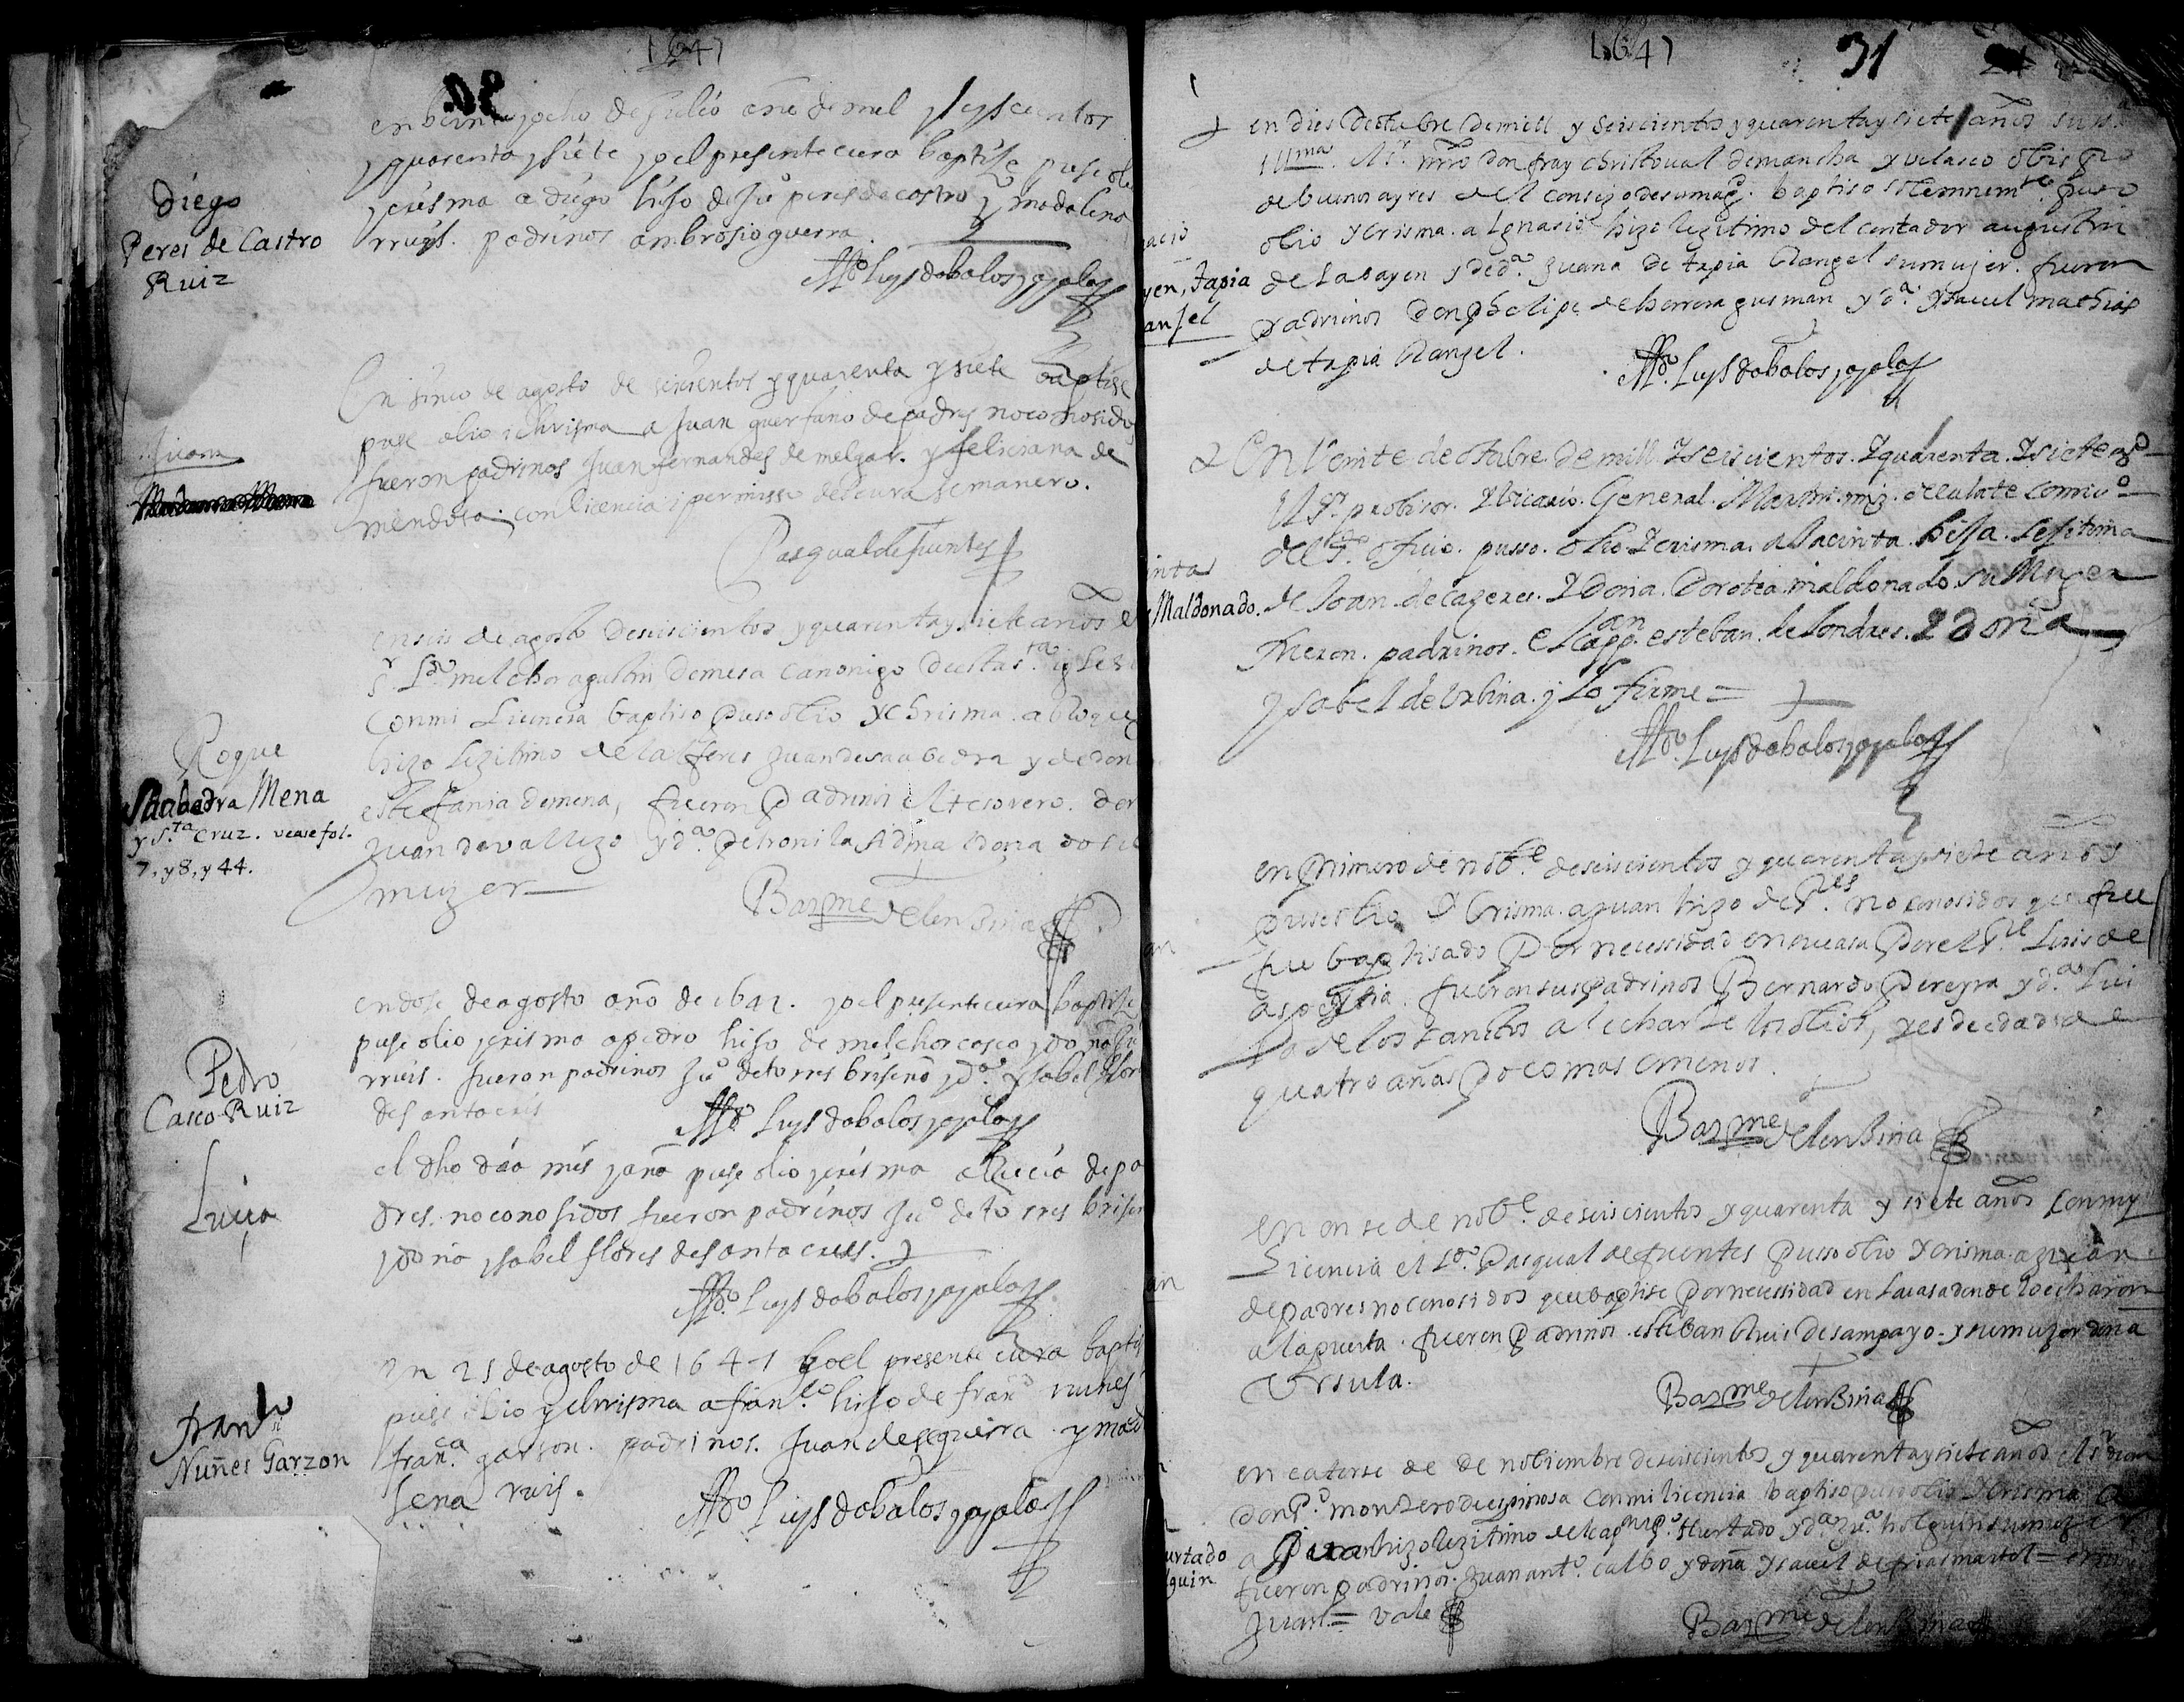 1647
en beinte y ocho de Julio año de mil y seyscientos
y quarenta y siete yo el presente cura baptise puse olio
y crisma a diego hijo de Juº peres de castro y madalena
rruys. padrinos ambrosio guerra.
Diego
Peres de Castro
Ruiz
Mº Luys dabalos y ayala
En sinco de agosto de seisientos y quarenta y siete baptise
puse olio i chrisma a Juan guerfano de padres no conosidos
fueron padrinos Juan fernandes de melgar. y feliciana de
mendosa. con licencia i permisso del cura semanero.
Juan
Pasqual de fuentes
en seis de agosto de seiscientos y quarenta y siete años el
sr Ldo melchor agustin de mesa canonigo desta sta igles
con mi Licencia baptiso puso olio y chrisma a Roque
hizo Lezitimo del alferes Juan de saabedra y de don
estefania de mena, fueron Padrinos el tesorero. don
Juan de vallezo y dª Petronila
muzer
Roque
Saabedra Mena
y Sta Cruz. vease fol.
7, y 8, y 44.
Barme de lensina
en dose de agosto año de 1647. yo el presente cura baptise
puse olio y crisma a pedro hijo de melchor casco y doña
rruis. fueron padrinos Juº de torres briseño y dª ysabel flor
de santa crus
Pedro
Casco Ruiz
Mº Luys dabalos y ayala
el dho dia mes y año puse olio y crisma a lucia de pa
dres no conosidos fueron padrinos Juº de torres briseñ
y doña ysabel flores de santa crus.
Lucia
Mº Luys dabalos y ayala
En 21 de agosto de 1647 yo el presente cura baptis
puse olio y chrisma a franco hijo de franco nunes
franca garson. padrinos. Juan de seguera y mada
lena ruis.
Franco
Nuñes Garzon
Mº Luys dabalos y ayala
1647
31
en dies de otubre de mill y seiscientos y quarenta y siete años su sª
Illma el sr mro don fray christoual de mancha y velasco obispo
de buenos ayres del consejo de su magd. baptiso solemnemte puso
olio y crisma a Ignasio hizo lezitimo del contador augustin
de Labayen y de dª Juana de tapia Rangel su mujer. fueron
padrinos Don phelipe de herrera gusman y dª ysauel mathias
de tapia Rangel.
acio
yen, tapia
anjel
Mº Luys dabalos y ayala
En Veinte de otubre de mill y seiscientos. y quarenta. y siete as
el sr probisor. y Vicario. General. Martin mrz. de eulate comisº
del sto oficio. pusso. olio y crisma. a Jacinta hija. lejitima
de Joan. de cazeres. y Dona. Dorotea maldonado. su Muger
fueron. padrinos. el capp an esteban. de londres. y doña
ysabel de Vrbina. y lo firme =
inta
Maldonado.
Mº Luys dabalos y ayala
en Primero de nobe de seiscientos y quarenta y siete años
puse olio y Crisma. a Juan hizo de Pes no conosidos que fue
fue baptisado Por necessidad en su casa Por el Pe Luis de
aspeitia. fueron sus padrinos Bernardo Pereyra y dª Lui
sa de los santos al echarle los olios, y es de edad de
quatro años Poco mas o menos.
an
Barme de lensina
en onse de nobe de seiscientos y quarenta y siete años con my
Licencia el Ldo Pasqual de fuentes Pusso olio y crisma a Juan
de padres no conosidos que baptise Por necessidad en la casa donde lo echaron
a la puerta. fueron Padrinos esteban Ruis de sampayo y su muger doña
Vrsula.
an
Barme de lensina
en catorse de de nobiembre de seiscientos y quarenta y siete años el sr dean
don Pº montero de espinosa con mi licencia baptiso puso olio y crisma
a Juan hizo lezitimo del capn Pº Hurtado y dª Juª holguin su muger
fueron padrinos. Juan antº calbo y doña ysauel de frias martel =
Juan = vale
urtado
lguin
Barme de lensina